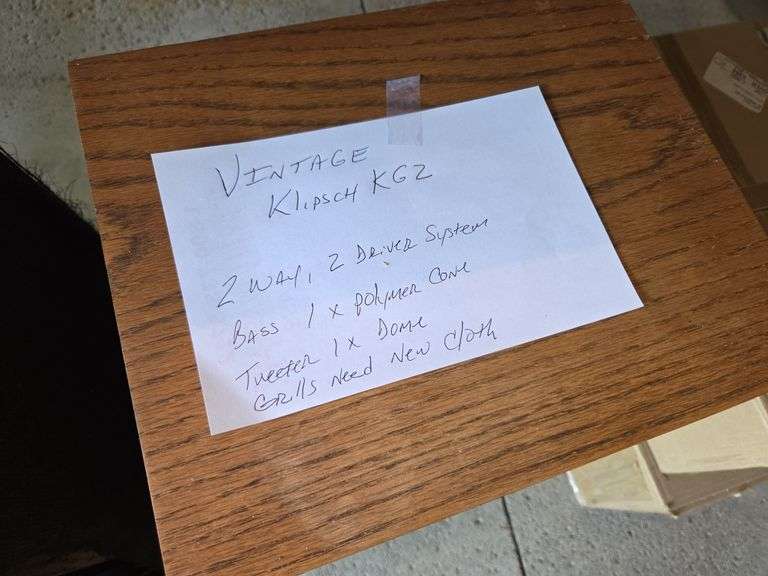 VINTAGE
Klipsch KG2
2 WAY, 2 Driver System
BASS 1 x polymer Cone
Tweeter 1x Dome
Grills Need New Cloth